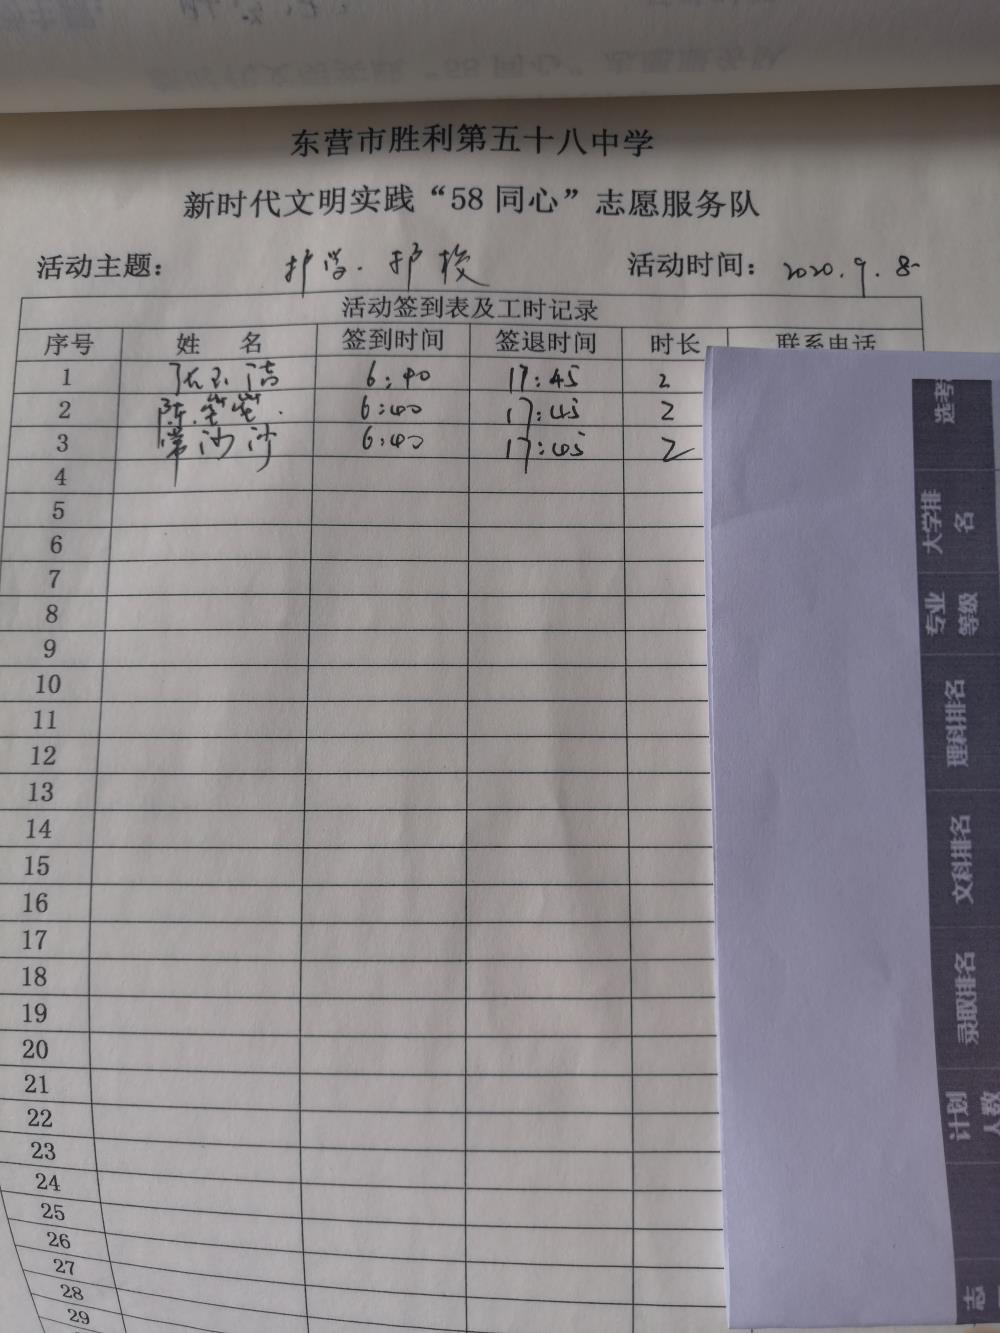 东营市胜利第五十八中学
新时代文明实践“58 同心”志愿服务队
活动主题： 护学.护校 活动时间： 2020.9.8
活动签到表及工时记录
序号 姓 名 签到时间 签退时间 时长 联系电话
1 张玉洁 6:40 17:45 2
2 陈 6:40 17:45 2
3 常沙沙 6:40 17:45 2
4
5
6
7
8
9
10
11
12
13
14
15
16
17
18
19
20
21
22
23
24
25
26
27
28
29
选考
大学排名
专业等级
理科排名
文科排名
录取排名
计划人数
志